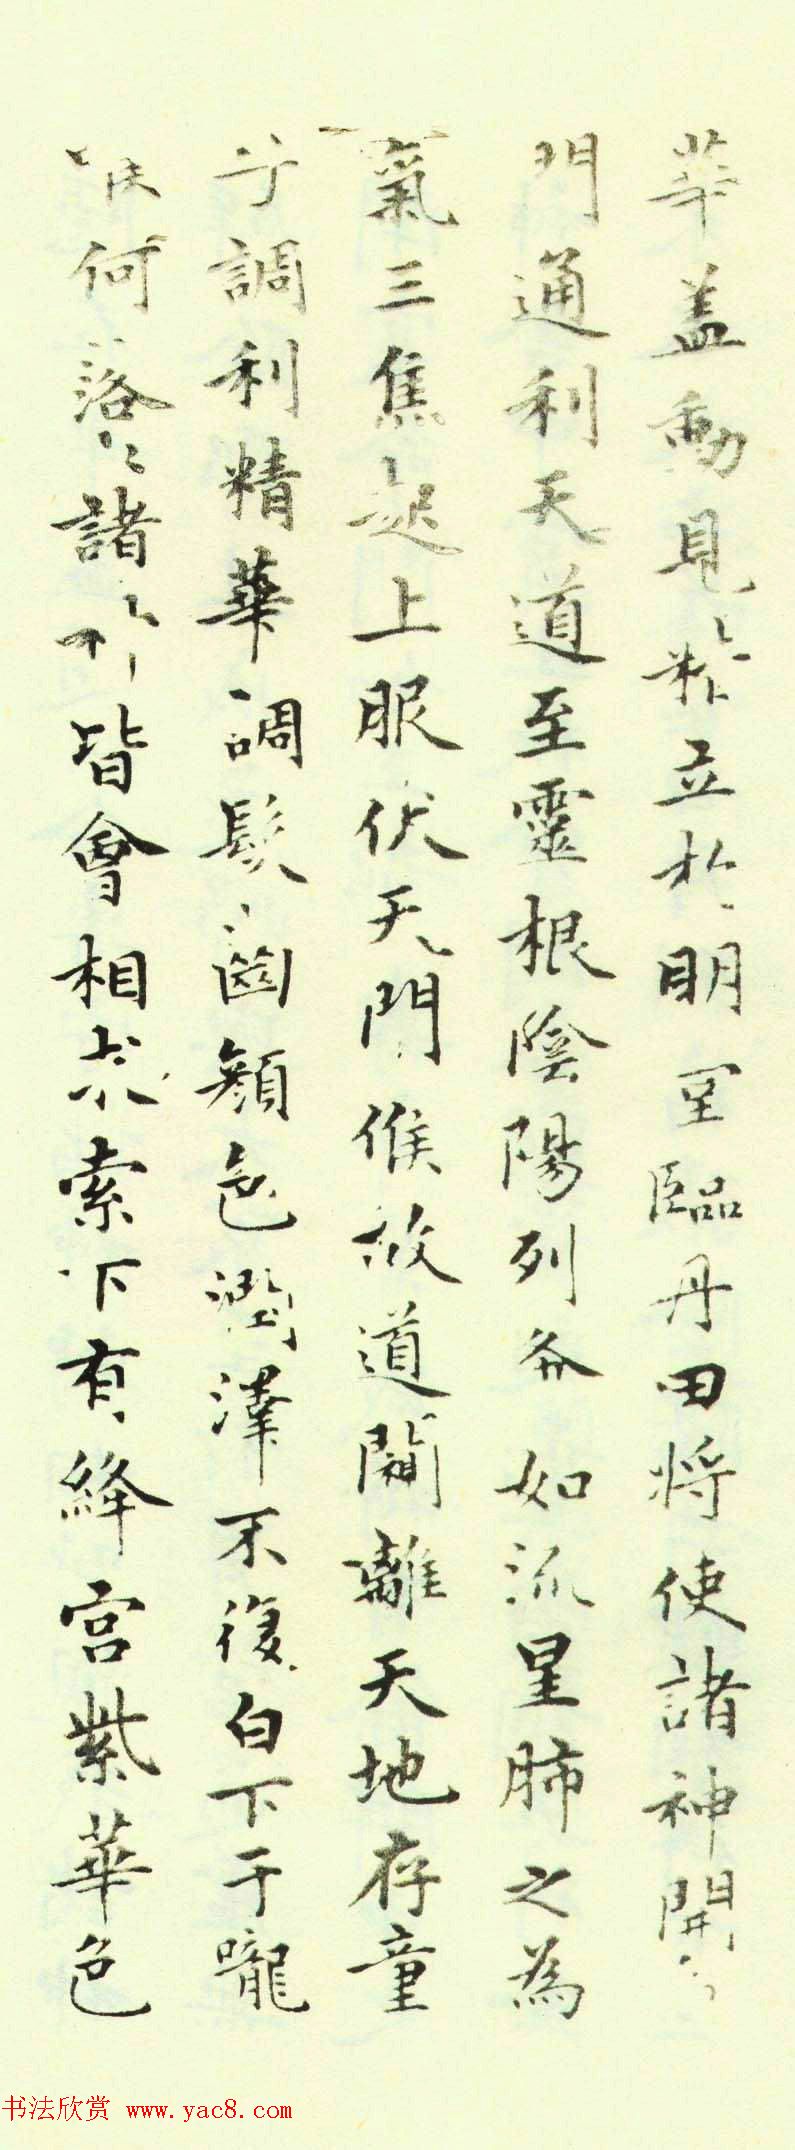 華盖動見精立於明堂臨丹田将使諸神開
門通利天道至靈根陰陽列布如流星肺之為
氣三焦起上服伏天門候故道闚離天地存童
子調利精華調髮齒顏色潤澤不復白下于嚨
喉何落諸神皆會相求索下有絳宮紫華色
书法欣赏 www.yac8.com